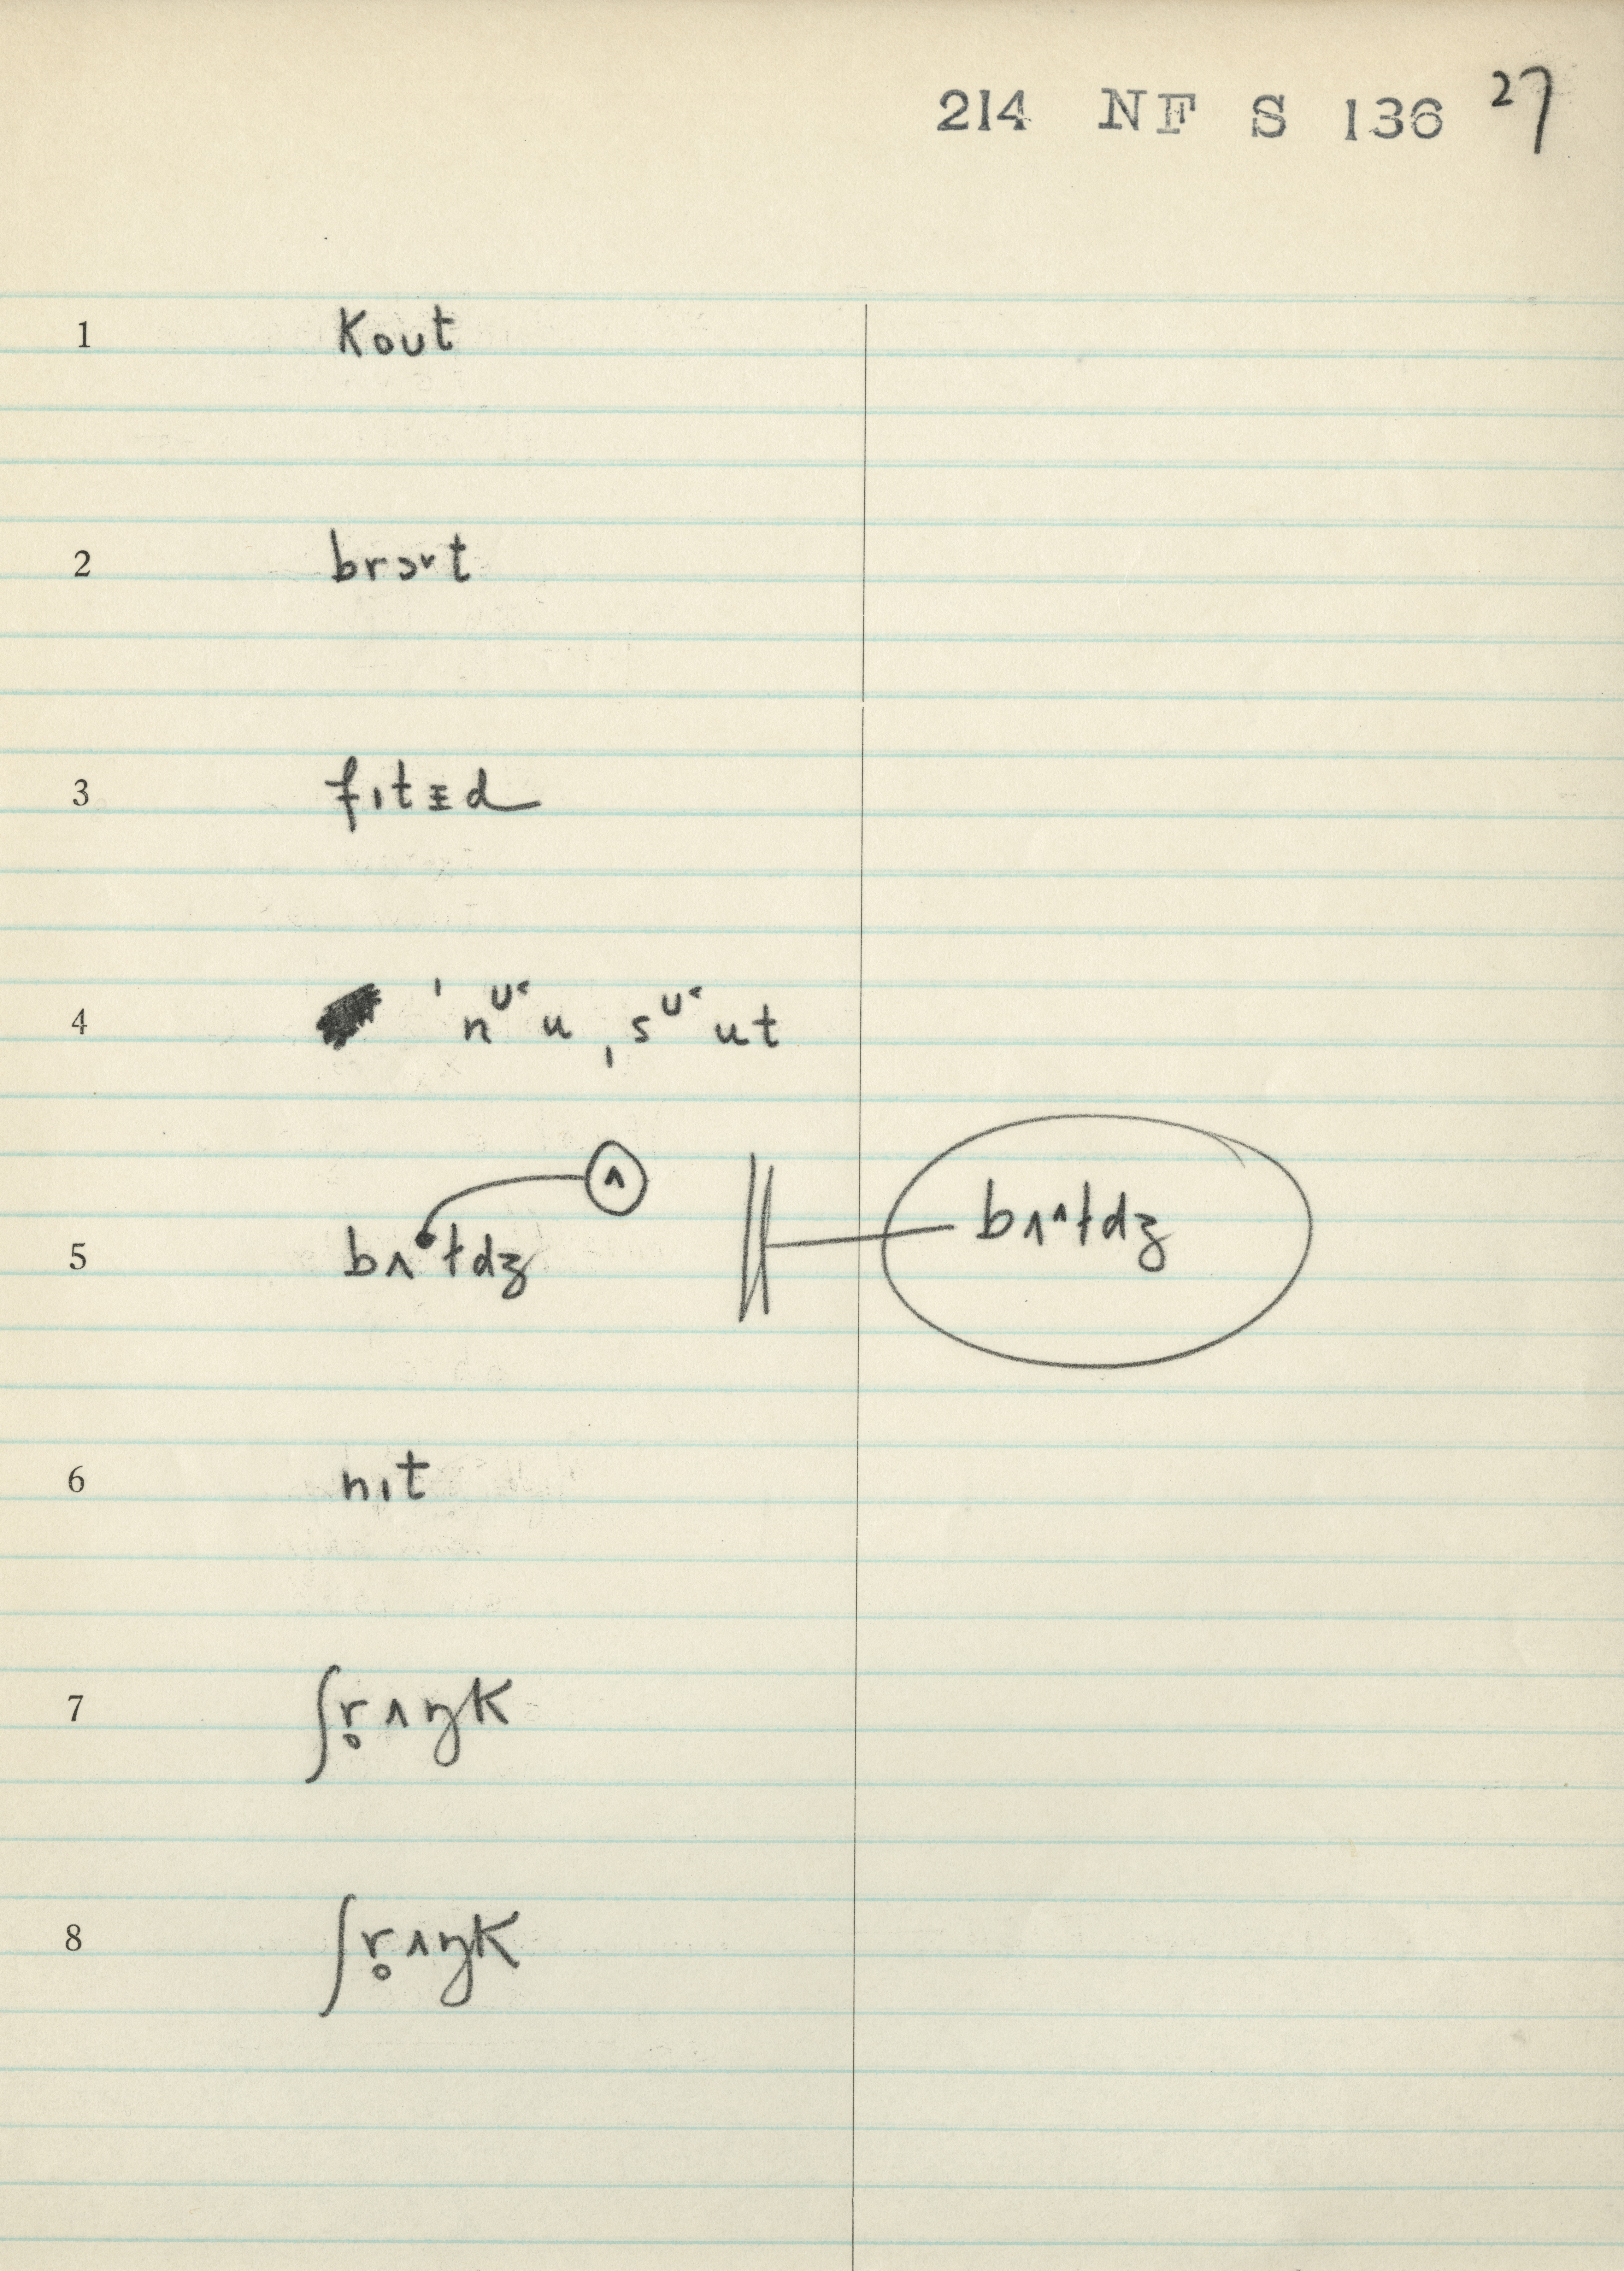 214 NF S 136 27
1 kout
2 brɔ˅t
3 fɪtᵻd
4 ˈnᶷ˂u ˌsᶷ˂ut
ʌ
5 bʌ^ɫdʒ bʌ^ɫdʒ
6 nɪt
7 ʃr̥ʌŋk
8 ʃr̥ʌŋk